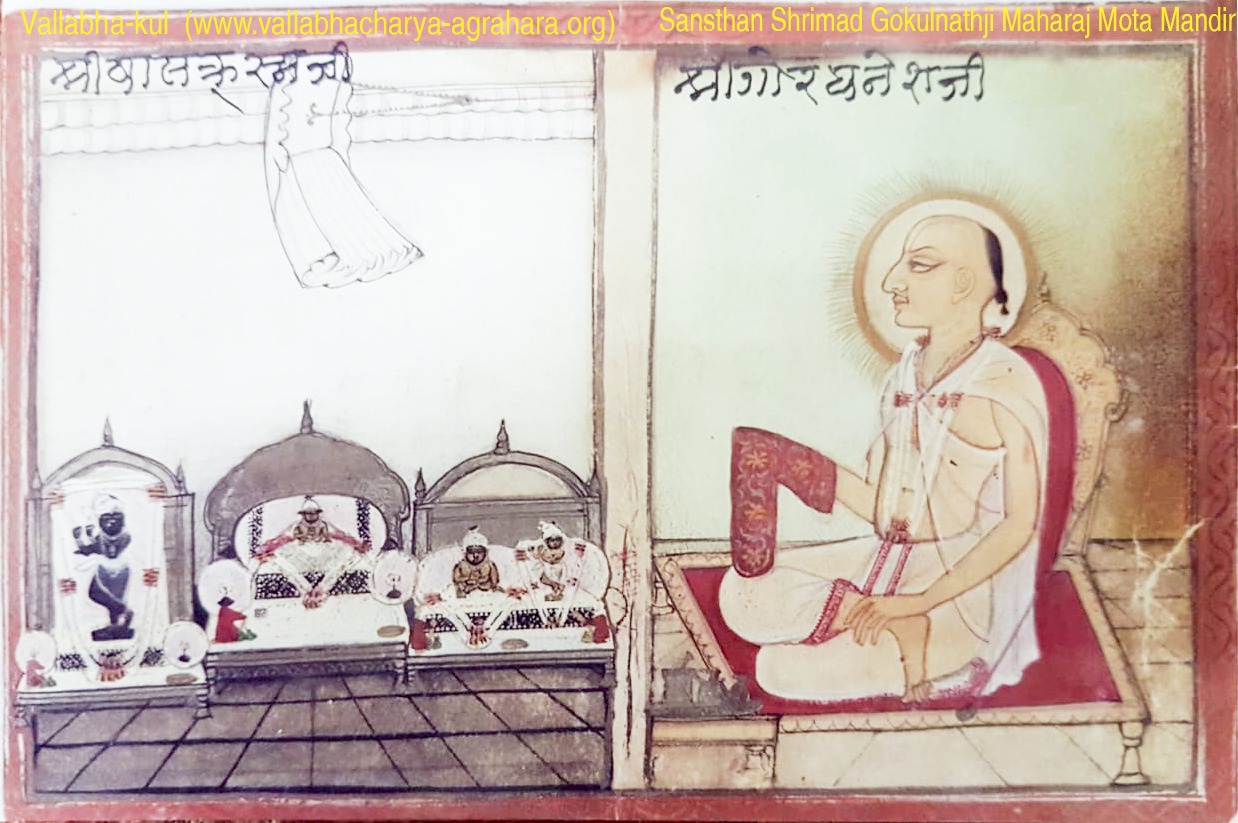 Vallabha-kul (www.vallabhacharya-agrahara.org)
Sansthan Shrimad Gokulnathji Maharaj Mota Mandir
श्रीबालकृस्मजी
श्रीगोरधनेशजी